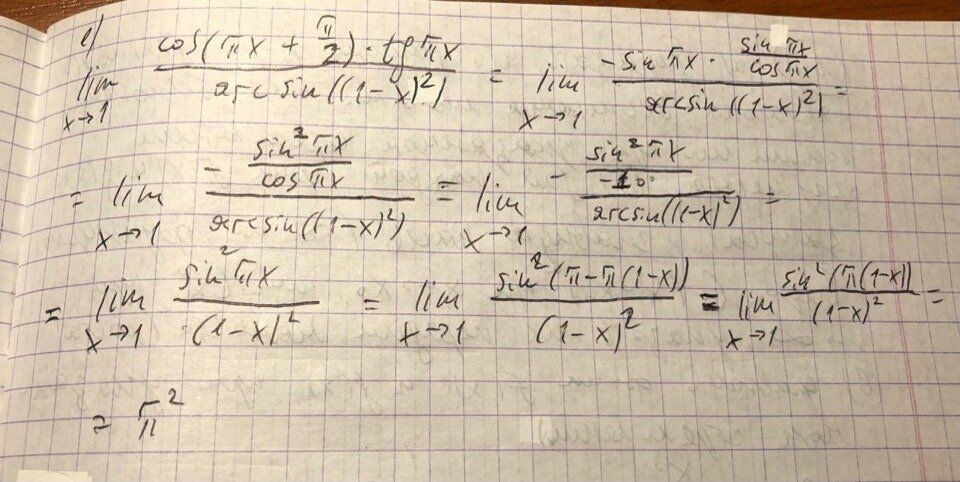 e)
lim x→1 (cos(πx + π/2) · tg πx) / (arcsin((1-x)²)) = lim x→1 (-sin πx · (sin πx / cos πx)) / (arcsin((1-x)²)) =
= lim x→1 (- (sin² πx / cos πx)) / (arcsin((1-x)²)) = lim x→1 (- (sin² πx / -1)) / (arcsin((1-x)²)) =
= lim x→1 (sin² πx) / ((1-x)²) = lim x→1 (sin² (π-π(1-x))) / ((1-x)²) = lim x→1 (sin² (π(1-x))) / ((1-x)²) =
= π²